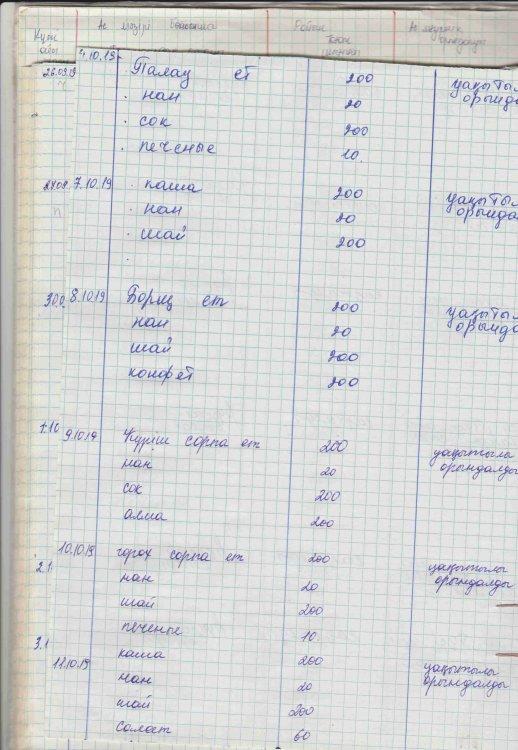 Күні Ас мәзірі
4.10.19
26.09.19 Палау ет 200 уақытыл
нан 20 орында
сок 200
печенье 10.
7.10.19 каша 200 уақытыл
нан 20 орында
шай 200
30.0 8.10.19 Борщ ет 200 уақытыл
нан 20 орында
шай 200
конфет 200
1.10 9.10.19 Күріш сорпа ет 200 уақытылы
нан 20 орындалды
сок 200
алма 200
10.10.19 горох сорпа ет 200 уақытылы
2.1 нан 20 орындалды
шай 200
печенье 10
3.1 каша 200 уақытылы
11.10.19 нан 20 орындалды
шай 200
салат 60